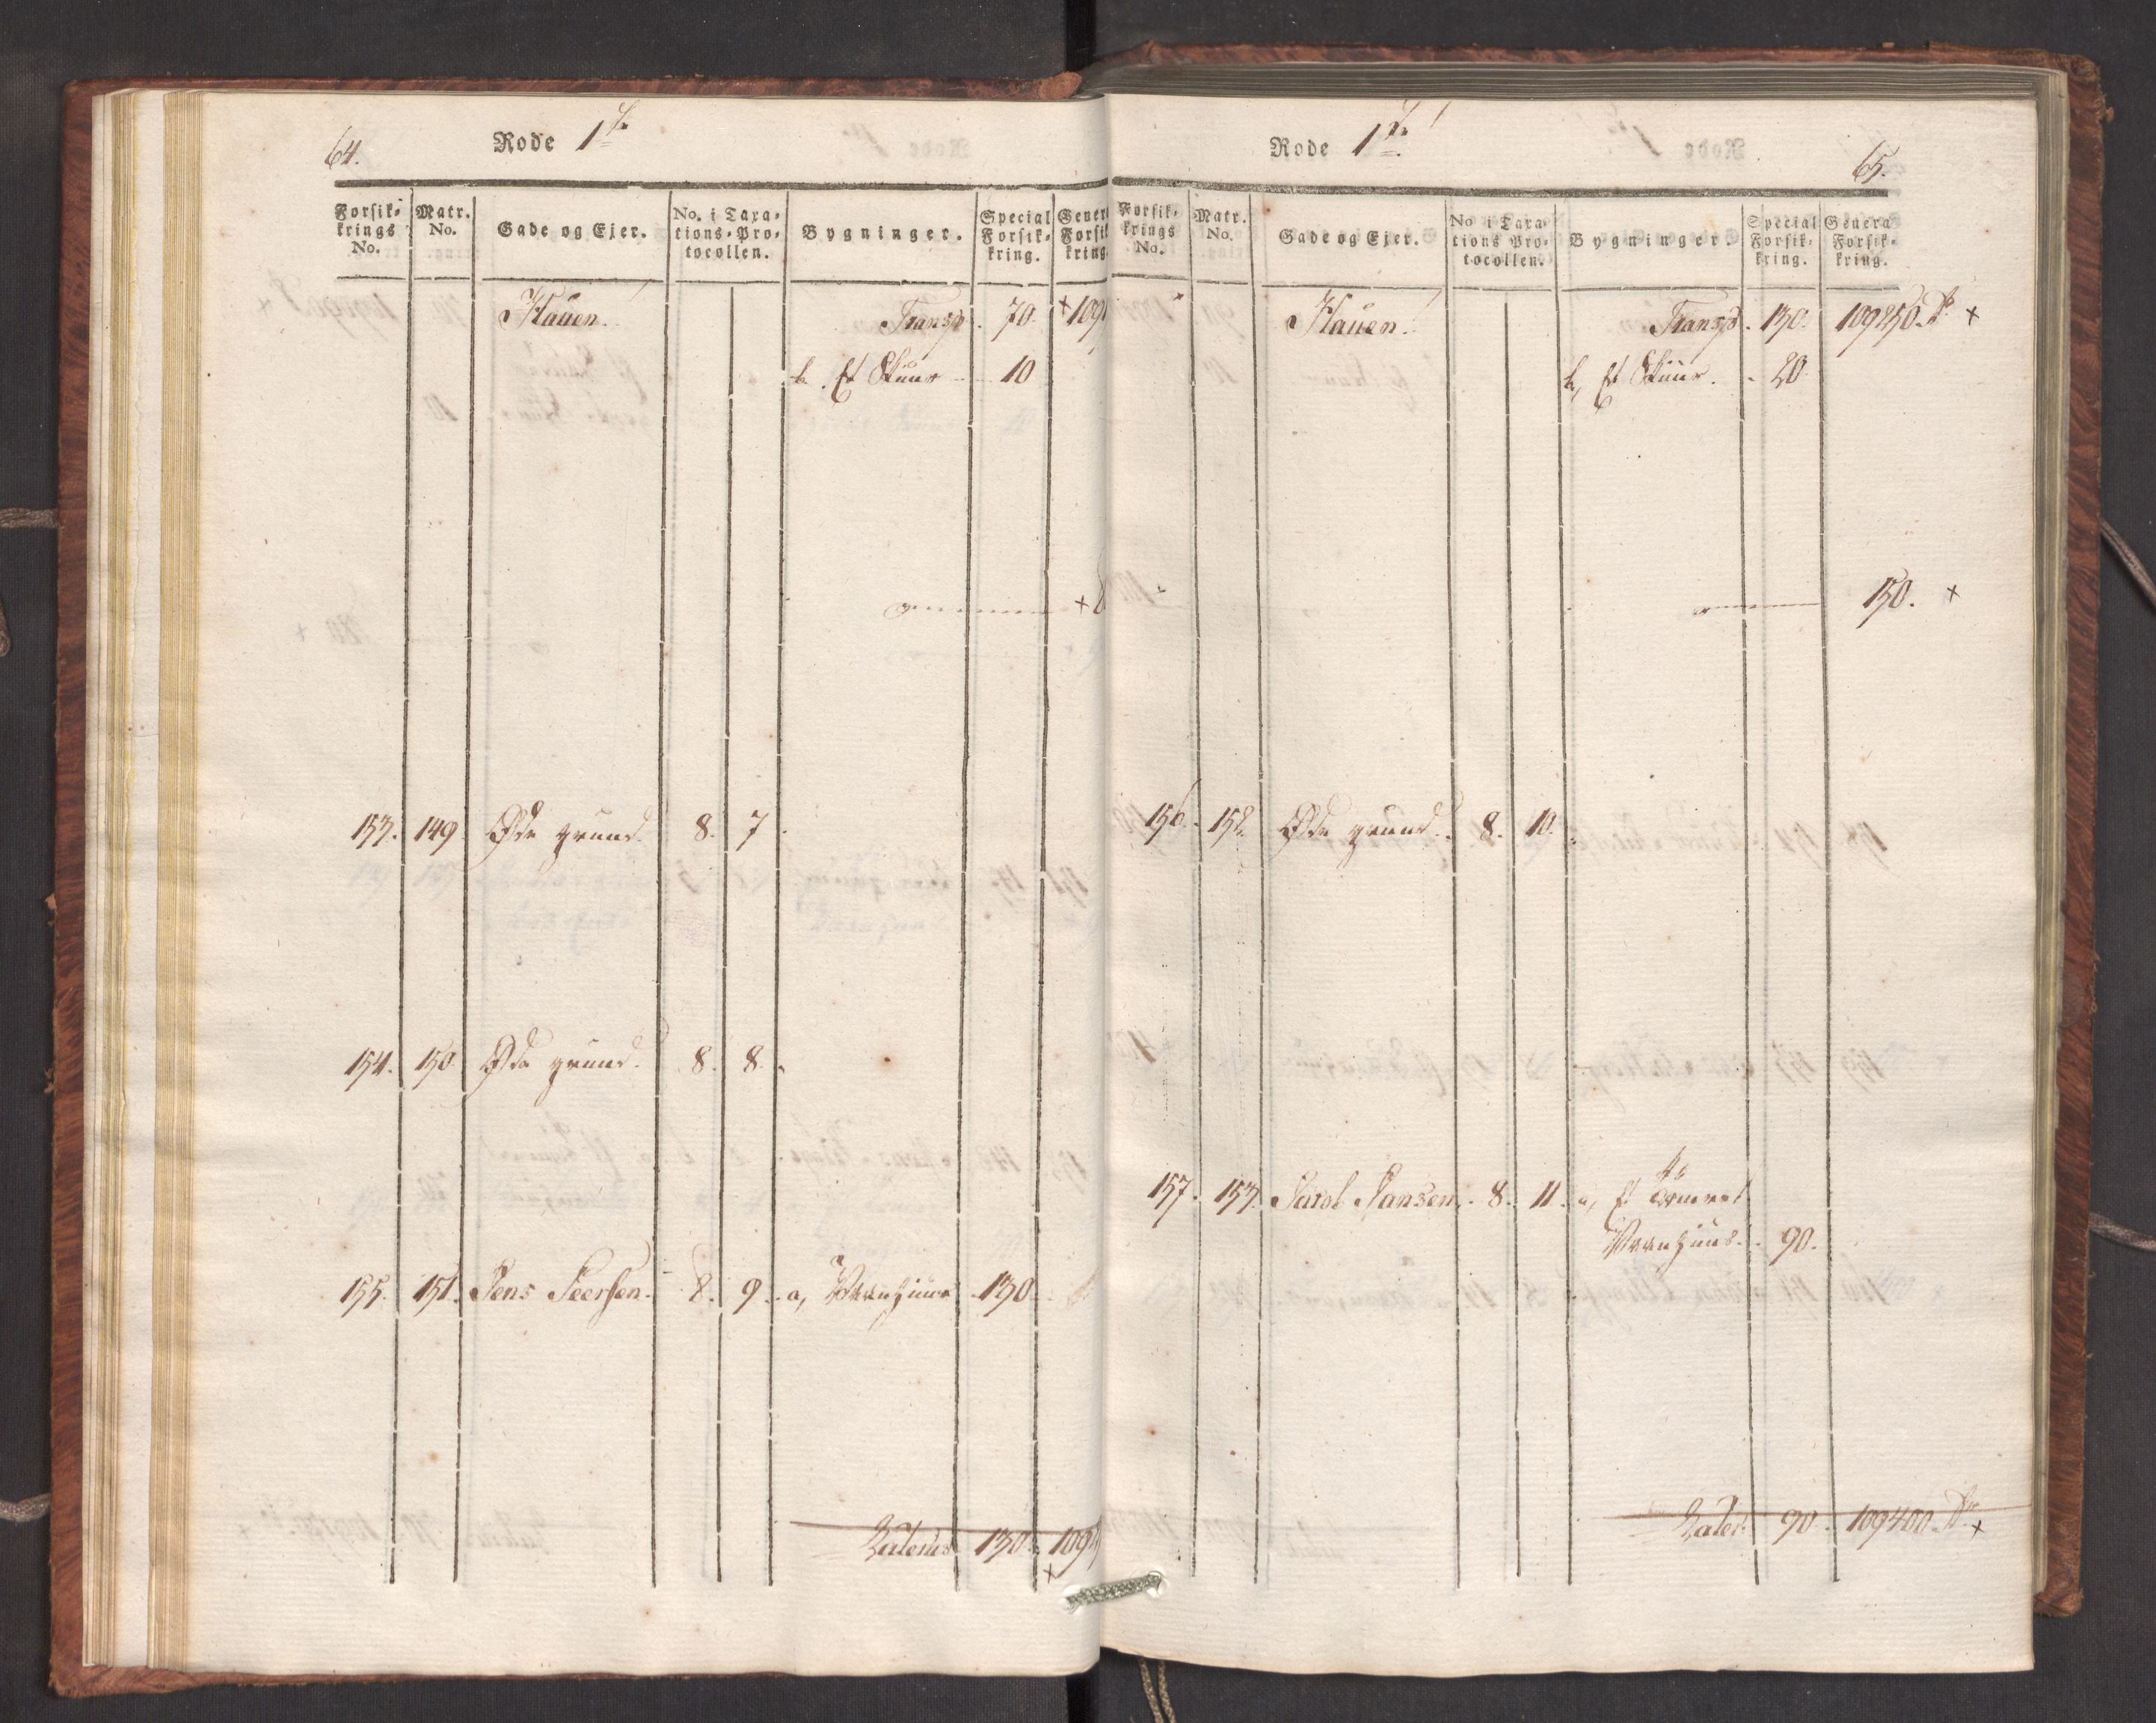 64.
Rode 1ste
Forsik-
krings
No.
Matr.
No.
Gade og Ejer.
No. i Taxa-
tions-Pro-
tocollen.
Bygninger.
Special
Forsik-
kring.
Gener
Forsik
kring
Hauen. Transp. 70. +109
b. Et Skuur 10
+
153. 149. Øde grund. 8. 7.
154. 150 Øde grund. 8. 8.
155. 151. Jens Peersen. 8. 9. a, Vaanhuus 130.
Lateris 130. 109
+
Rode 1ste
65.
Forsik-
krings
No.
Matr.
No.
Gade og Ejer.
No i Taxa-
tions Pro-
tocollen.
Bygninger.
Special
Forsik-
kring.
Genera
Forsik-
kring.
Hauen. Transp. 130. 109250 +
b, Et Skuur. 20
150. +
156. 152. Øde grund. 8. 10.
157. 153. Jacob Hansen. 8. 11. a, Et Tömret
Vaanhuus. 90.
Later. 90. 109400 +